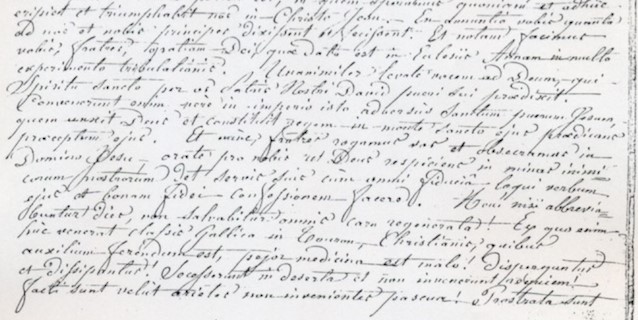 eripiet et triumphabit nos in Christo Jesu. En annuntio vobis quanta
ad nos et nobis principes dixerint et fecerint. Et notam facimus
vobis, fratres, gratiam Dei quæ data est in Eclesiis Annam in multo
experimento tribulationis. Unanimiter levate vocem ad Deum, qui
Spiritu Sancto per os Patris Nostri David pueri sui prædixit.
Convenerunt enim vere in imperio isto adversus Sanctum puerum Jesum,
quem unxit Deus et constituit regem in monte sancto ejus prædicans
præceptum ejus. Et nunc, fratres rogamus vos et obsecramus in
Domino Jesu, orate pro nobis ut Deus respiciens in minas inimi-
corum nostrorum det servis suis cum omni fiducia loqui verbum
ejus et bonam fidei confessionem facere. Heu! nisi abbrevia-
buntur dies non salvabitur omnis caro regenerata! Ex quo enim
huc venerat classis Gallica in Christianis, quibus
auxilium ferendum est, pejor medicina est malo! Disperguntur
et dissipantur! Secesserunt in deserta et non invenerunt requiem!
Facti sunt velut arietes non invenientes pascua! Prostrata sunt